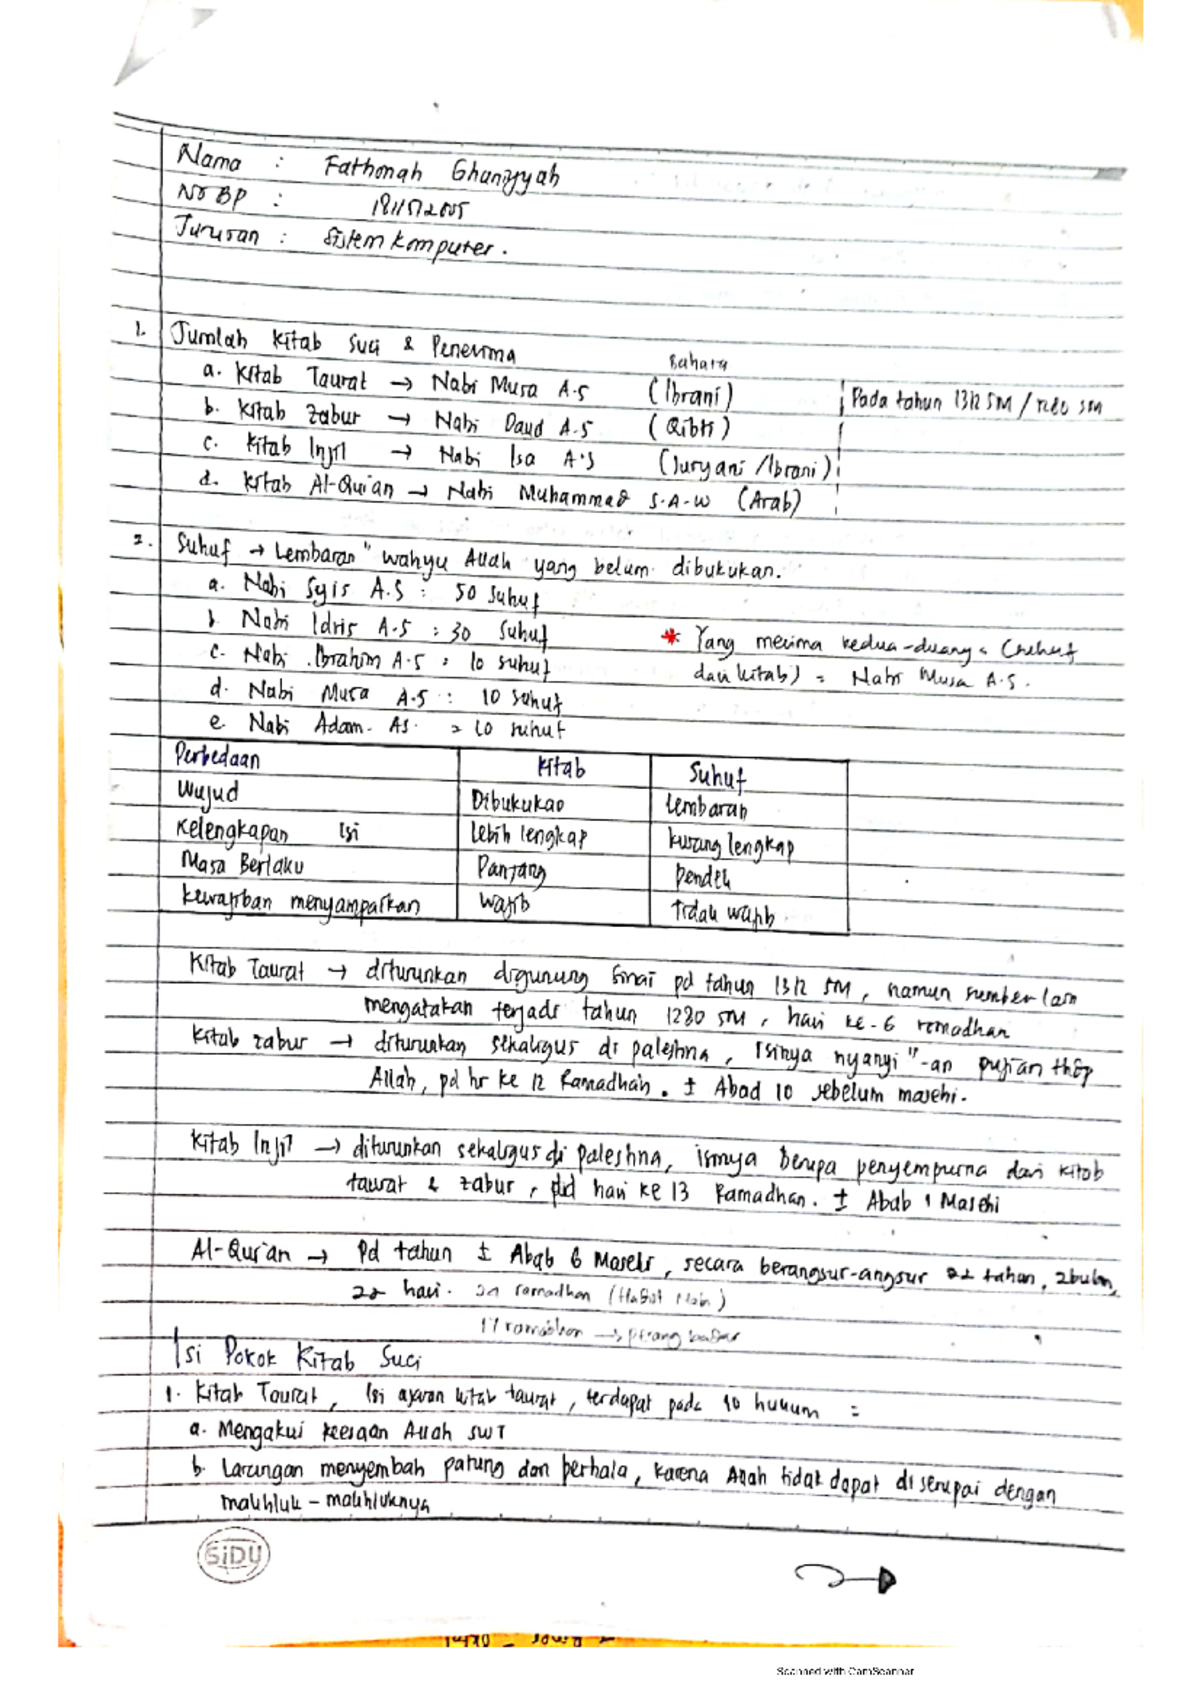 Nama : Fathonah Ghaniyyah
No BP :
Jurusan : Sistem Komputer.
1. Jumlah Kitab Suci & Penerima Bahasa
a. Kitab Taurat → Nabi Musa A.S (Ibrani) Pada tahun 1312 SM / 1280 SM
b. Kitab Zabur → Nabi Daud A.S (Qibti)
c. Kitab Injil → Nabi Isa A.S (Suryani / Ibrani)
d. Kitab Al-Qur'an → Nabi Muhammad S.A.W (Arab)
2. Suhuf → Lembaran" wahyu Allah yang belum dibukukan.
a. Nabi Syis A.S : 50 suhuf
b Nabi Idris A.S : 30 Suhuf
* Yang merima kedua-duanya (suhuf
c. Nabi Ibrahim A.S : 10 suhuf
dan kitab) = Nabi Musa A.S.
d. Nabi Musa A.S : 10 suhuf
e. Nabi Adam. AS. = 10 suhuf
Perbedaan Kitab Suhuf
Wujud Dibukukan Lembaran
Kelengkapan Isi Lebih lengkap kurang lengkap
Masa Berlaku Panjang Pendek
Kewajiban menyampaikan Wajib Tidak wajib
Kitab Taurat → diturunkan digunung Sinai pd tahun 1312 SM, namun sumber lain
mengatakan terjadi tahun 1280 SM, hari ke-6 romadhan
Kitab zabur → diturunkan sekaligus di palestina, Isinya nyanyi"-an pujian thdp
Allah, pd hr ke 12 Ramadhan. ± Abad 10 sebelum masehi.
Kitab Injil → diturunkan sekaligus di palestina, isinya berupa penyempurna dari kitab
taurat & zabur, pd hari ke 13 Ramadhan. ± Abab 1 Masehi
Al-Qur'an → Pd tahun ± Abab 6 Masehi, secara berangsur-angsur 22 tahun, 2 bulan,
22 hari. ramadhan
17 ramadhan → perang badar
Isi Pokok Kitab Suci
1. Kitab Taurat, Isi ajaran kitab taurat, terdapat pada 10 hukum :
a. Mengakui keesaan Allah SWT
b. Larangan menyembah patung dan berhala, karena Allah tidak dapat di serupai dengan
makhluk - makhluknya
SiDU
Scanned with CamScanner